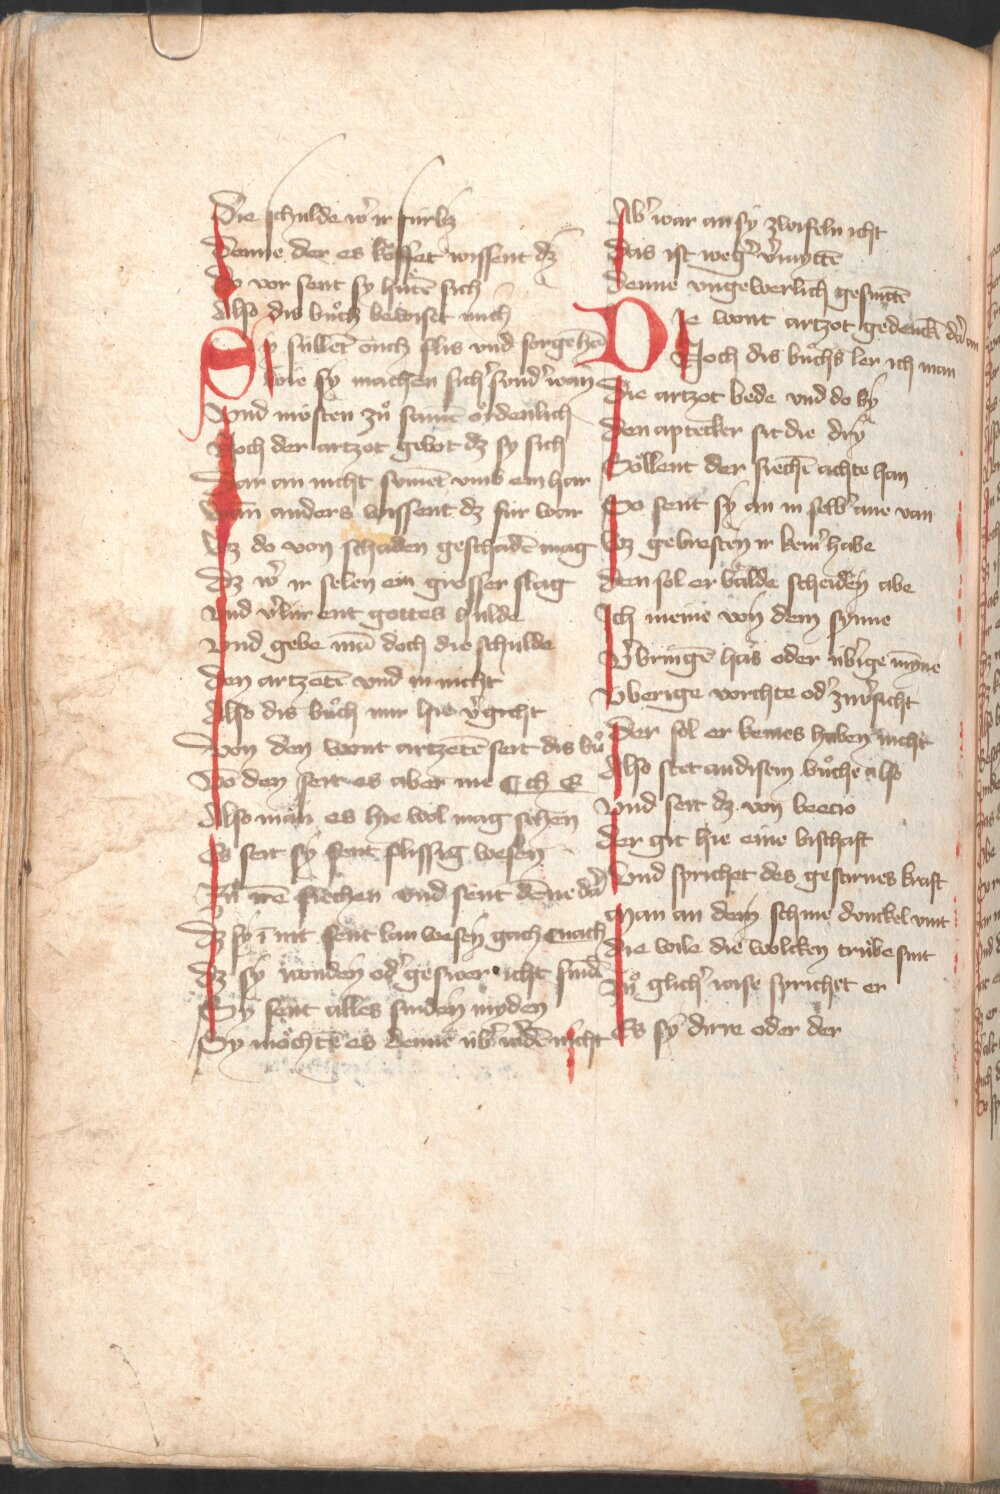 Die schulde wͤ ir kúrtz
Denne der es koͤffet wissent dz
Do vor sent sy huͤtē sich
Also dis buͦch bewiset mich
Sy súllēt ouch flis vnd sorge hā
Wie sy machen sich' sund' wan
Vnd moͤsten zuͦ samē oͤrdenlich
Noch der artzot gebot dz sy sich
Dar an nicht sumēt vmb ein har
Wan anders wissent dz für war
Wz do von schaden geschadē mag
Dz w' ir selen ein grosser slag
Vnd v'lúr ent gottes hulde
Vnd gebe mā doch die schulde
Den artzetē vnd in nicht
Also dis buͦch mir hie v'gicht
Von den wunt artzetē seit dis buͦ
Vō den seit es aber me ch e
Also man es hie wol mag sehen
Es seit sy sent flissig wesen
Zuͦ irē siechen vnd sent dēne dā
Dz sy ī nit sent lan wesen gach nach
Dz sy wunden od' geswer icht sind
Sy sent alles sinden myden
Sy moͤchtē es denne úb' w'dē nicht
Ab' war an sy zwifeln icht
Das ist weg' v'mittē
Denne vngewerlich gesnittē
Die wunt artzot gedenck dar an
Noch dis buͦchs ler ich man
Die artzot bede vnd do by
Den apptecker sit die dry
Soͤllent der siechē achte han
So sent sy an in selb' ane van
Wz gebresten ir kein' habe
Den sol er balde scheiden abe
Ich meine von dem synne
V'bringē has oder úb'ige mīne
Vberige vorchte od' zuͦv'sicht
Der sol er keines haben nicht
Also stet an disem buͦche also
Vnd seit dz von boecio
Der git hie eine bischaft
Vnd sprichet des gestirnes kraft
Man an dem schine dunckel vint
Die wile die wolcken truͤbe sint
Zuͦ glich' wise sprichet er
Es sy dirre oder der